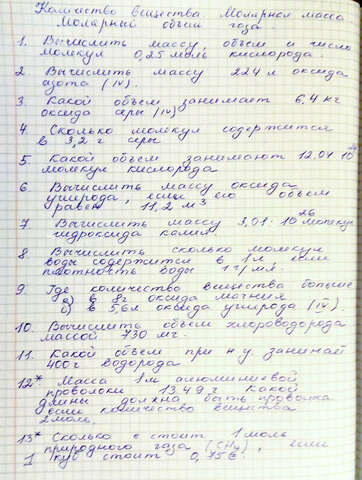 Количество вещества Молярная масса
Молярный объем газа.
1. Вычислить массу, объем и число
молекул 0,25 моль кислорода.
2. Вычислить массу 224 л оксида
азота (IV).
3. Какой объем занимает 6,4 кг
оксида серы (IV)
4. Сколько молекул содержится
в 3,2 г серы
5. Какой объем занимают 12,04 10
молекул кислорода
6. Вычислить массу оксида
углерода, если его объем
равен 11,2 м³
7 Вычислить массу 3,01 · 10²⁶ молекул
гидроксида калия
8. Вычислить сколько молекул
воды содержится в 1 л если
плотность воды 1 г/мл
9. Где количество вещества больше
а) в 8г оксида магния
б) в 5,6л оксида углерода (IV)
10. Вычислить объем хлороводорода
массой 730 мг.
11. Какой объем при н у занимает
400 г водорода
12* Масса 1м алюминиевой
проволоки 13,49 г Какой
длины должна быть проволка
если количество вещества
2моль.
13* Сколько стоит 1 моль
природного газа (CH₄), если
1 куб стоит 0,75